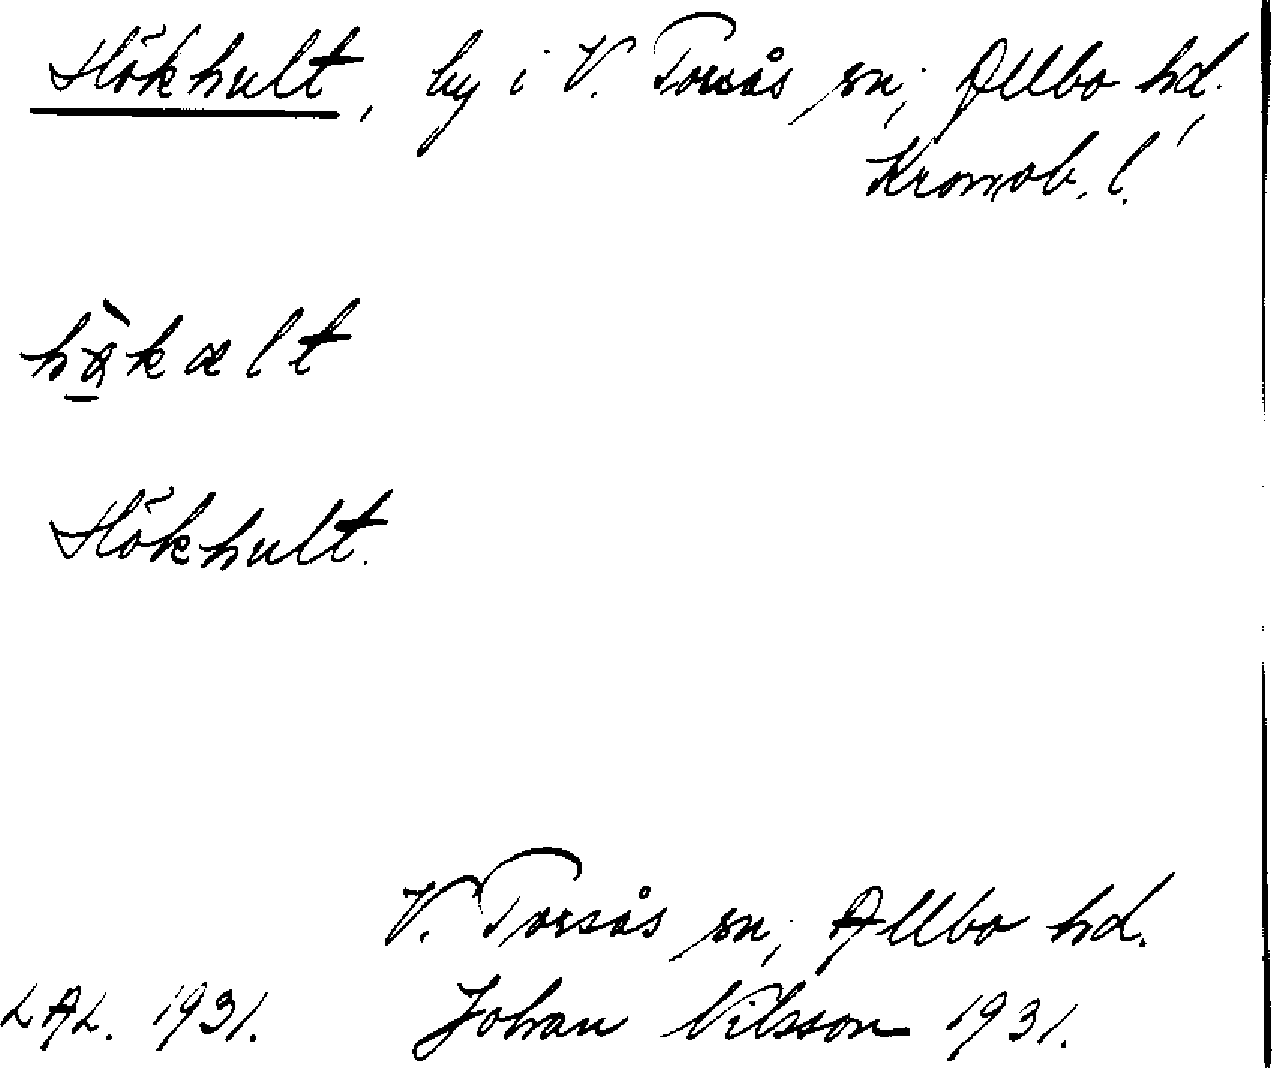 Hökhult, by i V. Torsås sn, Allbo hd,
Kronob. l.
Hökhult.
V. Torsås sn, Allbo hd.
LAL. 1931. Johan Nilsson 1931.